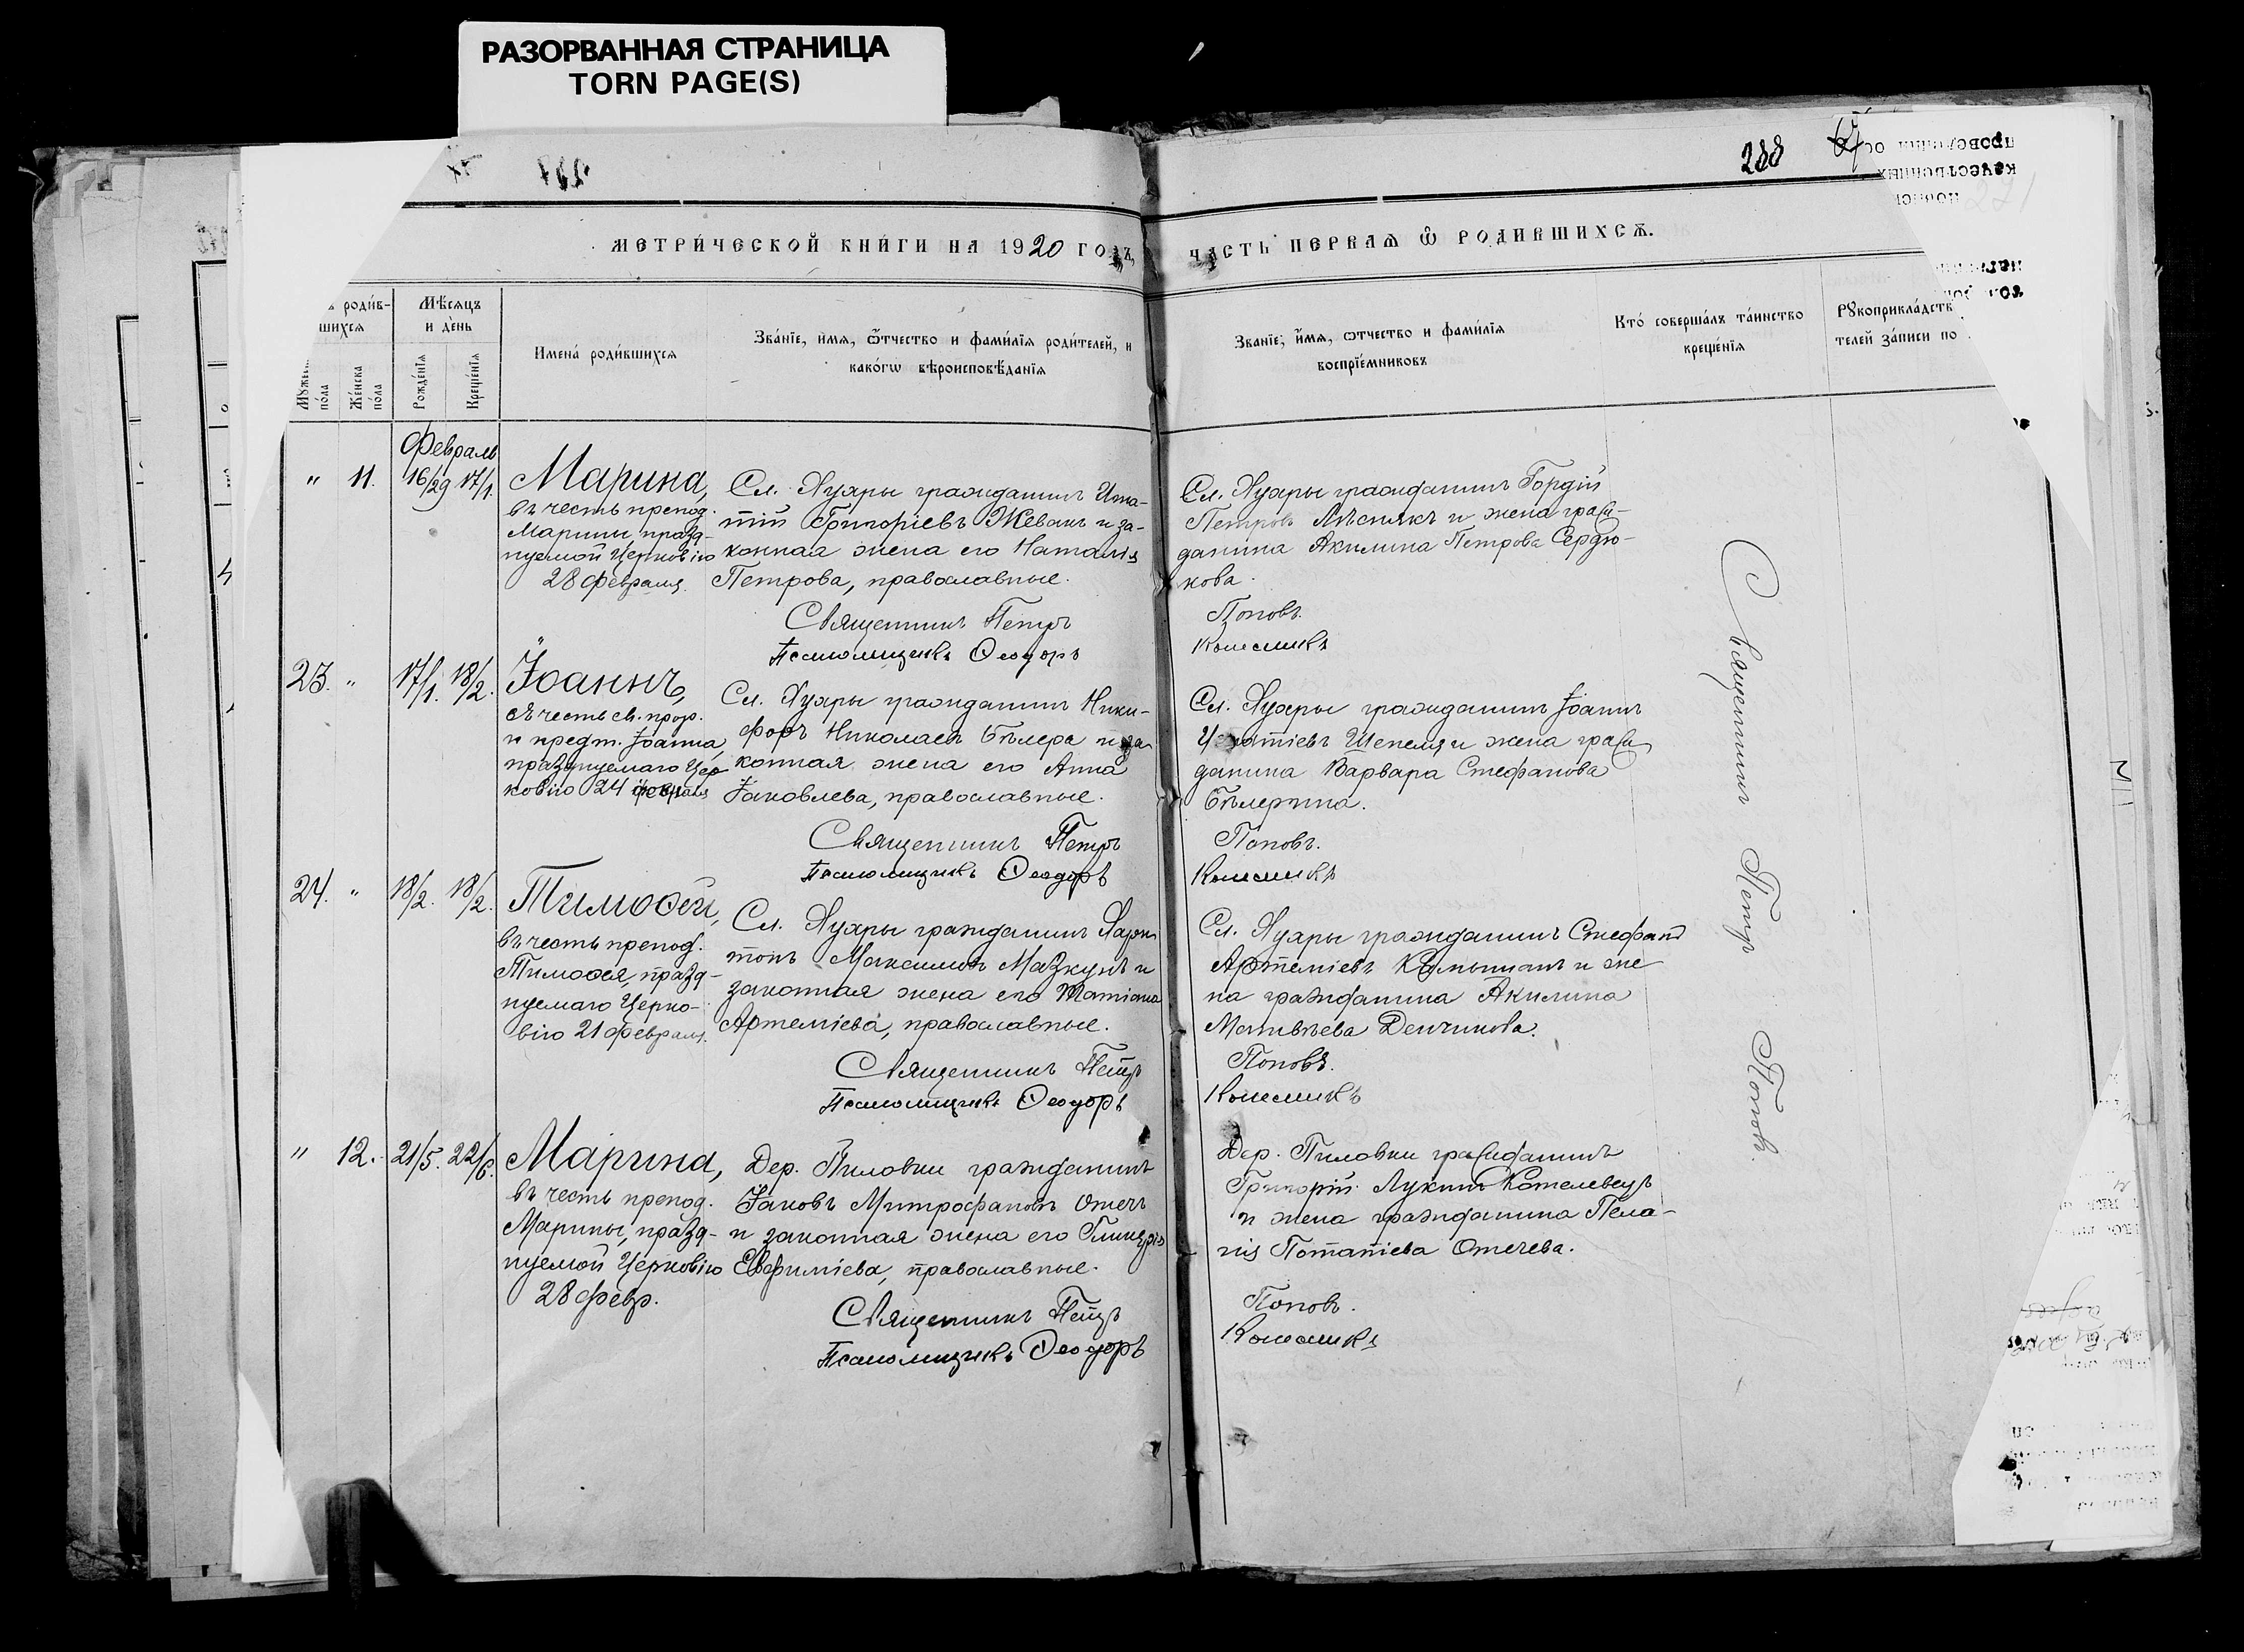 РАЗОРВАННАЯ СТРАНИЦА
TORN PAGE(S)
288
МЕТРИ́ЧЕСКОЙ КНИ́ГИ НА 1920 ГОДЪ,
ЧАСТЬ ПЕРВАѦ Ѡ РОДИВШИХСѦ.
роди́в-
шихсѧ
Мꙋжеск
по́ла
Же́нска
по́ла
Мѣ́сѧцъ
и де́нь
Рожде́нїѧ
Креще́нїѧ
Имена́ роди́вшихсѧ
Зва́нїе, и́мѧ, ѻ́тчество и фами́лїѧ роди́телей, и
како́гѡ вѣроисповѣ́данїѧ
Зва́нїе, и́мѧ, ѻтчество и фами́лїѧ
воспрїе́мниковъ
Кто́ соверша́лъ та́инство
креще́нїѧ
Рꙋкоприкла́дств
телей за́писи по
Февраль
" 11. 16/29 17/1.
Марина,
въ честь препод.
Марины, празд-
нуемой Церковію
28 февраля.
Сл. Ауяры гражданинъ Игна-
тій Григоріевъ Жеванъ и за-
конная жена его Наталія
Петрова, православные.
Священникъ Петръ
Псаломщикъ Ѳеодоръ
Сл. Ауяры гражданинъ Гордій
Петровъ Лѣснякъ и жена граж-
данина Акилина Петрова Сердю-
кова.
Поповъ.
Колесникъ
23. " 17/1. 18/2.
Іоаннъ,
въ честь св. прор.
и предт. Іоанна,
празднуемаго Цер-
ковію 24 февраля
Сл. Ауяры гражданинъ Ники-
форъ Николаевъ Бѣлера и за-
конная жена его Анна
Іаковлева, православные.
Священникъ Петръ
Псаломщикъ Ѳеодоръ
Сл. Ауяры гражданинъ Іоаннъ
Игнатіевъ Шепеля и жена граж-
данина Варвара Стефанова
Бѣлерина.
Поповъ.
Колесникъ
24. " 18/2. 18/2.
Тимоѳей,
въ честь препод.
Тимоѳея, празд-
нуемаго Церко-
вію 21 февраля.
Сл. Ауяры гражданинъ Хари-
тонъ Максимовъ Мазкунъ и
законная жена его Татіана
Артеміева, православные.
Священникъ Петръ
Псаломщикъ Ѳеодоръ
Сл. Ауяры гражданинъ Стефанъ
Артеміевъ и же-
на гражданина Акилина
Матвѣева Денчикова.
Поповъ.
Колесникъ
" 12. 21/5. 22/6.
Марина,
въ честь препод.
Марины, празд-
нуемой Церковію
28 февр.
Дер. Пиловки гражданинъ
Іаковъ Митрофановъ Отечь
и законная жена его Гликерія
Евфиміева, православные.
Священникъ Петръ
Псаломщикъ Ѳеодоръ
Дер. Пиловки гражданинъ
Григорій Лукинъ Котелевецъ
и жена гражданина Пела-
гія Потапіева Отечева.
Поповъ.
Колесникъ
Священникъ Петръ Поповъ.